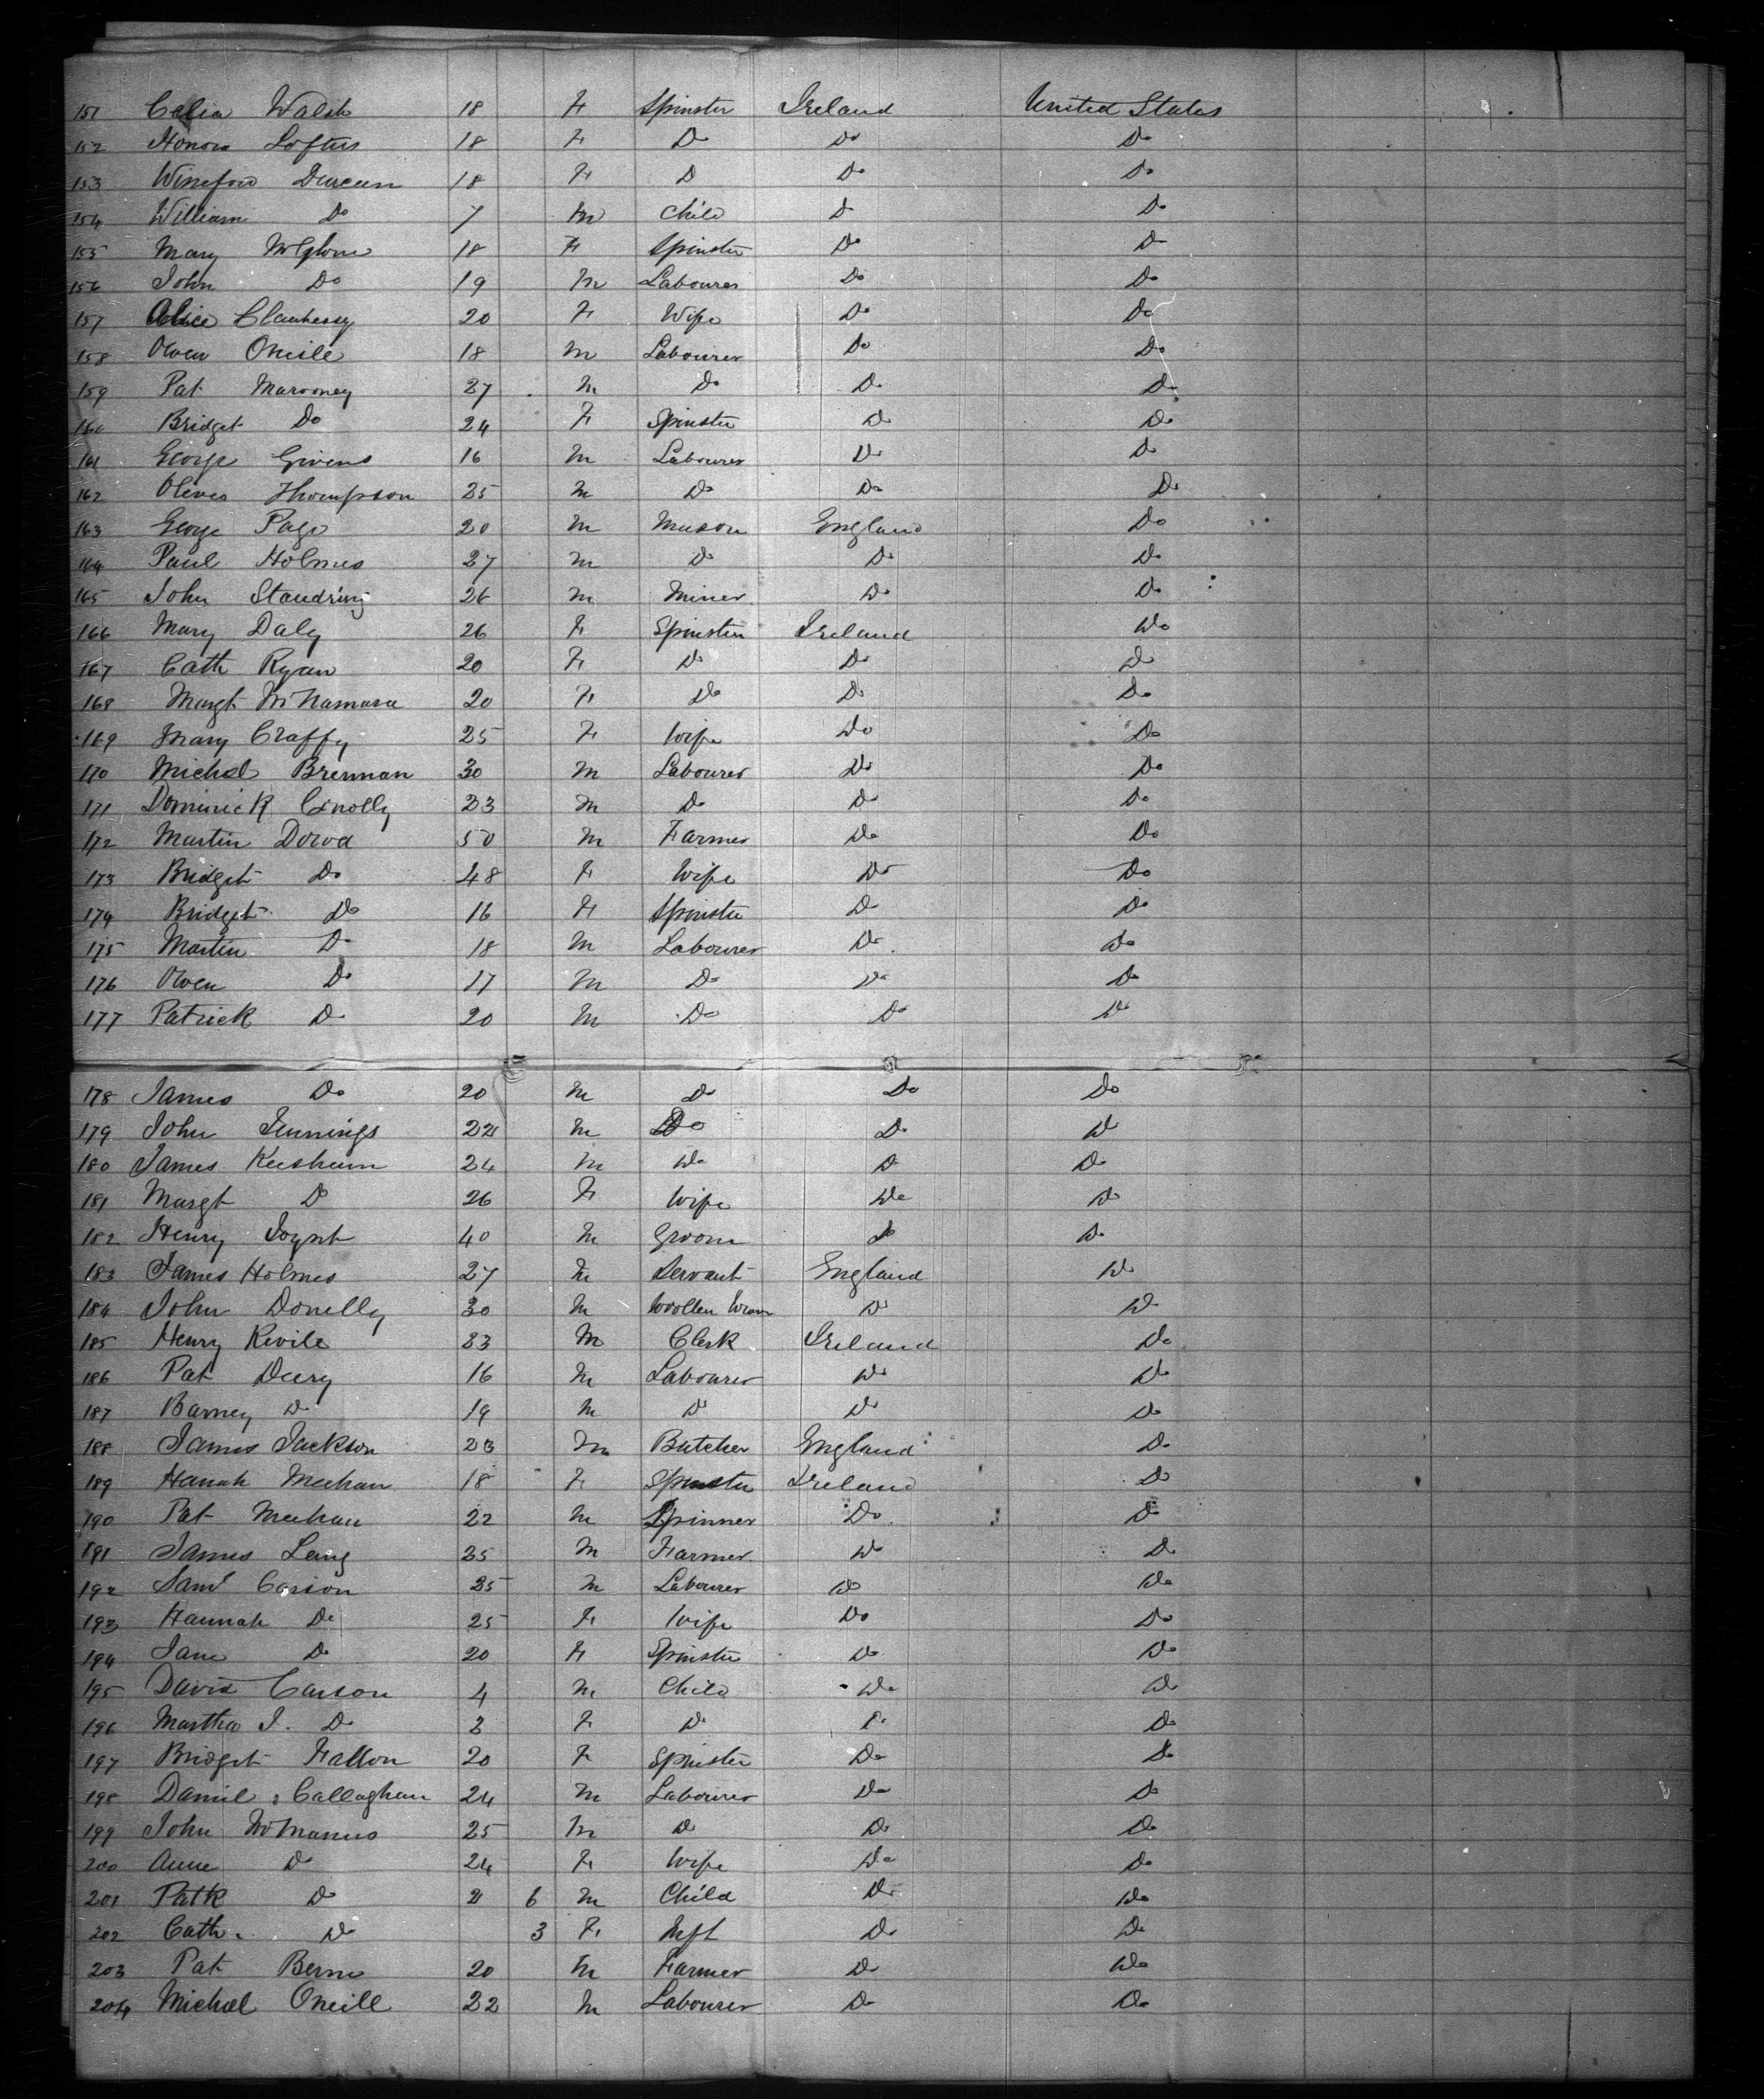 151 Celia Walsh 18 F Spinster Ireland United States
152 Honora Loftus 18 F Do Do Do
153 Wineford Durcan 18 F D Do Do
154 William Do 7 M Child D Do
155 Mary McGlone 18 F Spinster Do Do
156 John Do 19 M Labourer Do Do
157 Alice Clauhessy 20 F Wife Do Do
158 Owen Oneile 18 M Labourer Do Do
159 Pat Marooney 27 M Do Do Do
160 Bridget Do 24 F Spinster Do Do
161 George Givens 16 M Labourer Do Do
162 Oliver Thompson 25 M Do Do Do
163 George Page 20 M Mason England Do
164 Paul Holmes 27 M Do Do Do
165 John Standring 26 M Miner Do Do
166 Mary Daly 26 F Spinster Ireland Do
167 Cath Ryan 20 F Do Do Do
168 Margt McNamara 20 F Do Do Do
169 Mary Craffy 25 F Wife Do Do
170 Michael Brennan 30 M Labourer Do Do
171 Dominick Conolly 23 M Do Do Do
172 Martin Dowd 50 M Farmer Do Do
173 Bridget Do 48 F Wife Do Do
174 Bridget Do 16 F Spinster Do Do
175 Martin Do 18 M Labourer Do Do
176 Owen Do 17 M Do Do Do
177 Patrick Do 20 M Do Do Do
178 James Do 20 M Do Do Do
179 John Jennings 22 M Do Do Do
180 James 24 M Do Do Do
181 Margt Do 26 F Wife Do Do
182 Henry Joynt 40 M Groom Do Do
183 James Holmes 27 M Servant England Do
184 John Donelly 30 M Woollen Do Do
185 Henry Kevile 23 M Clerk Ireland Do
186 Pat Deery 16 M Labourer Do Do
187 Barney Do 19 M Do Do Do
188 James Jackson 23 M Butcher England Do
189 Hanah Meehan 18 F Spinster Ireland Do
190 Pat Meehan 22 M Spinner Do Do
191 James Lang 25 M Farmer Do Do
192 Saml Carson 25 M Labourer Do Do
193 Hannah Do 25 F Wife Do Do
194 Jane Do 20 F Spinster Do Do
195 David Carson 4 M Child Do Do
196 Martha J. Do 2 F Do Do Do
197 Bridget Fallon 20 F Spinster Do Do
198 Daniel Callaghan 24 M Labourer Do Do
199 John McManus 25 M Do Do Do
200 Anne Do 24 F Wife Do Do
201 Patk Do 2 6 M Child Do Do
202 Cath. Do 3 F Inft Do Do
203 Pat Berne 20 M Farmer Do Do
204 Michael Oneill 22 M Labourer Do Do